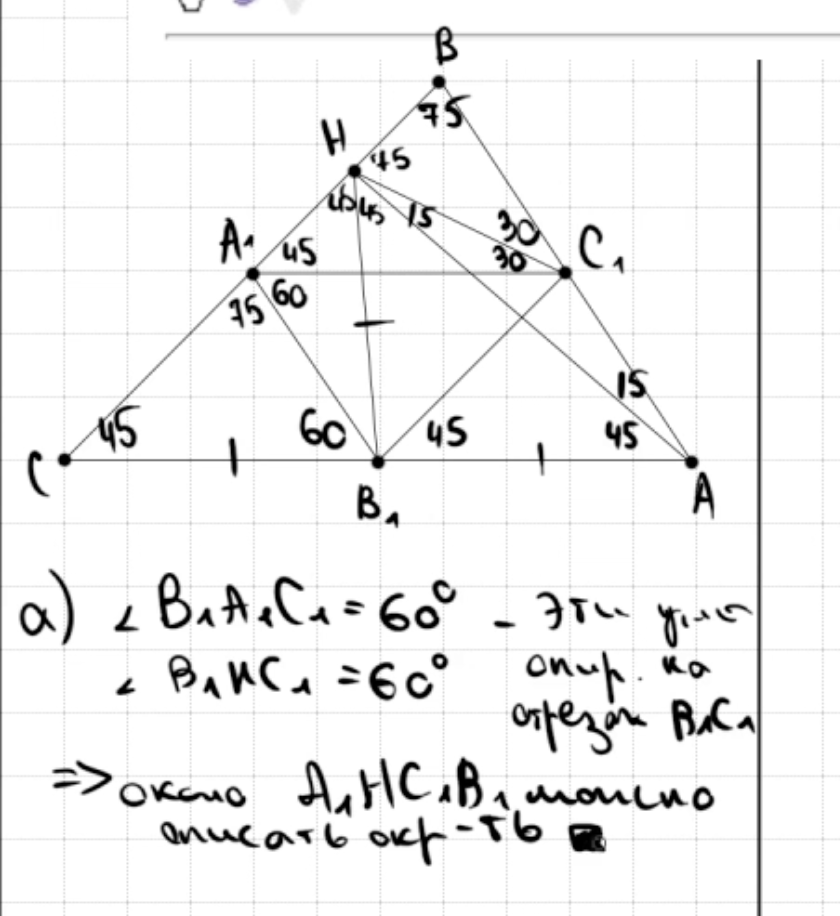 B
75
H
75
45 45 15
30
A₁ 45
30 C₁
75 60
15
45 60 45 45
C
B₁ A
a) ∠ B₁A₁C₁ = 60° - Эти углы
∠ B₁HC₁ = 60° опир. на
отрезок B₁C₁
=> около A₁HC₁B₁ можно
описать окр-ть